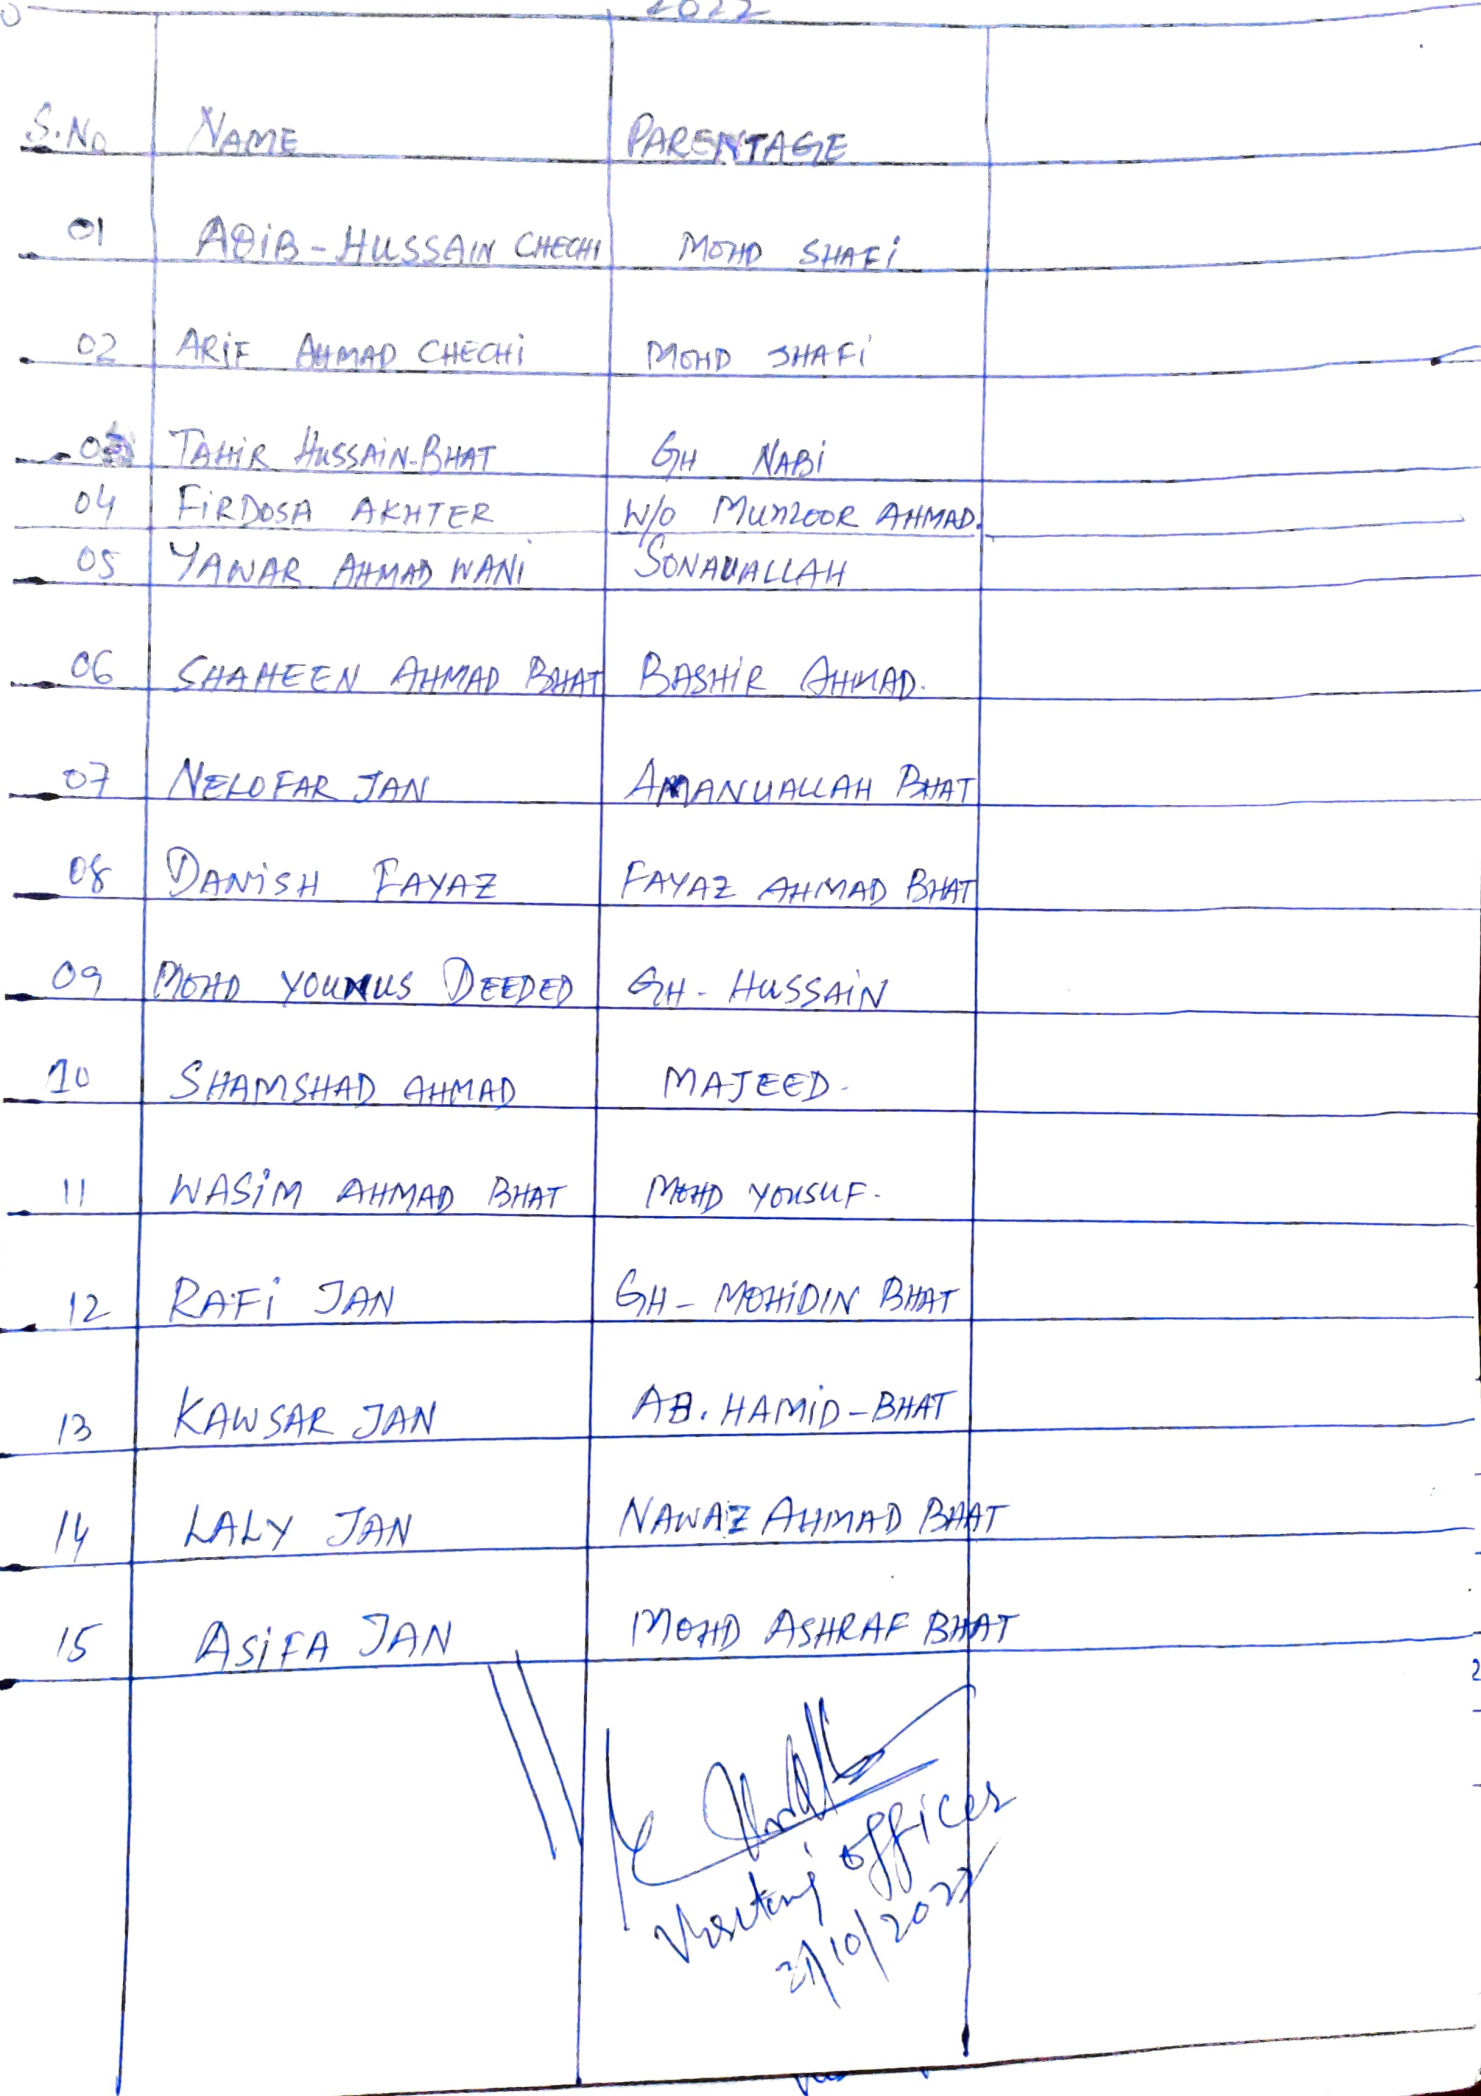 2022
S.No NAME PARENTAGE
01 AQIB-HUSSAIN CHECHI MOHD SHAFI
02 ARIF AHMAD CHECHI MOHD SHAFI
03 TAHIR HUSSAIN-BHAT GH NABI
04 FIRDOSA AKHTER W/O MUNZOOR AHMAD.
05 YAWAR AHMAD WANI SONAUALLAH
06 SHAHEEN AHMAD BHAT BASHIR AHMAD.
07 NELOFAR JAN AMANUALLAH BHAT
08 DANISH FAYAZ FAYAZ AHMAD BHAT
09 MOHD YOUNUS DEEDED GH- HUSSAIN
10 SHAMSHAD AHMAD MAJEED-
11 WASIM AHMAD BHAT MOHD YOUSUF-
12 RAFI JAN GH- MOHIDIN BHAT
13 KAWSAR JAN AB. HAMID-BHAT
14 LALY JAN NAWAZ AHMAD BHAT
15 ASIFA JAN MOHD ASHRAF BHAT
Visiting officer
21/10/2022